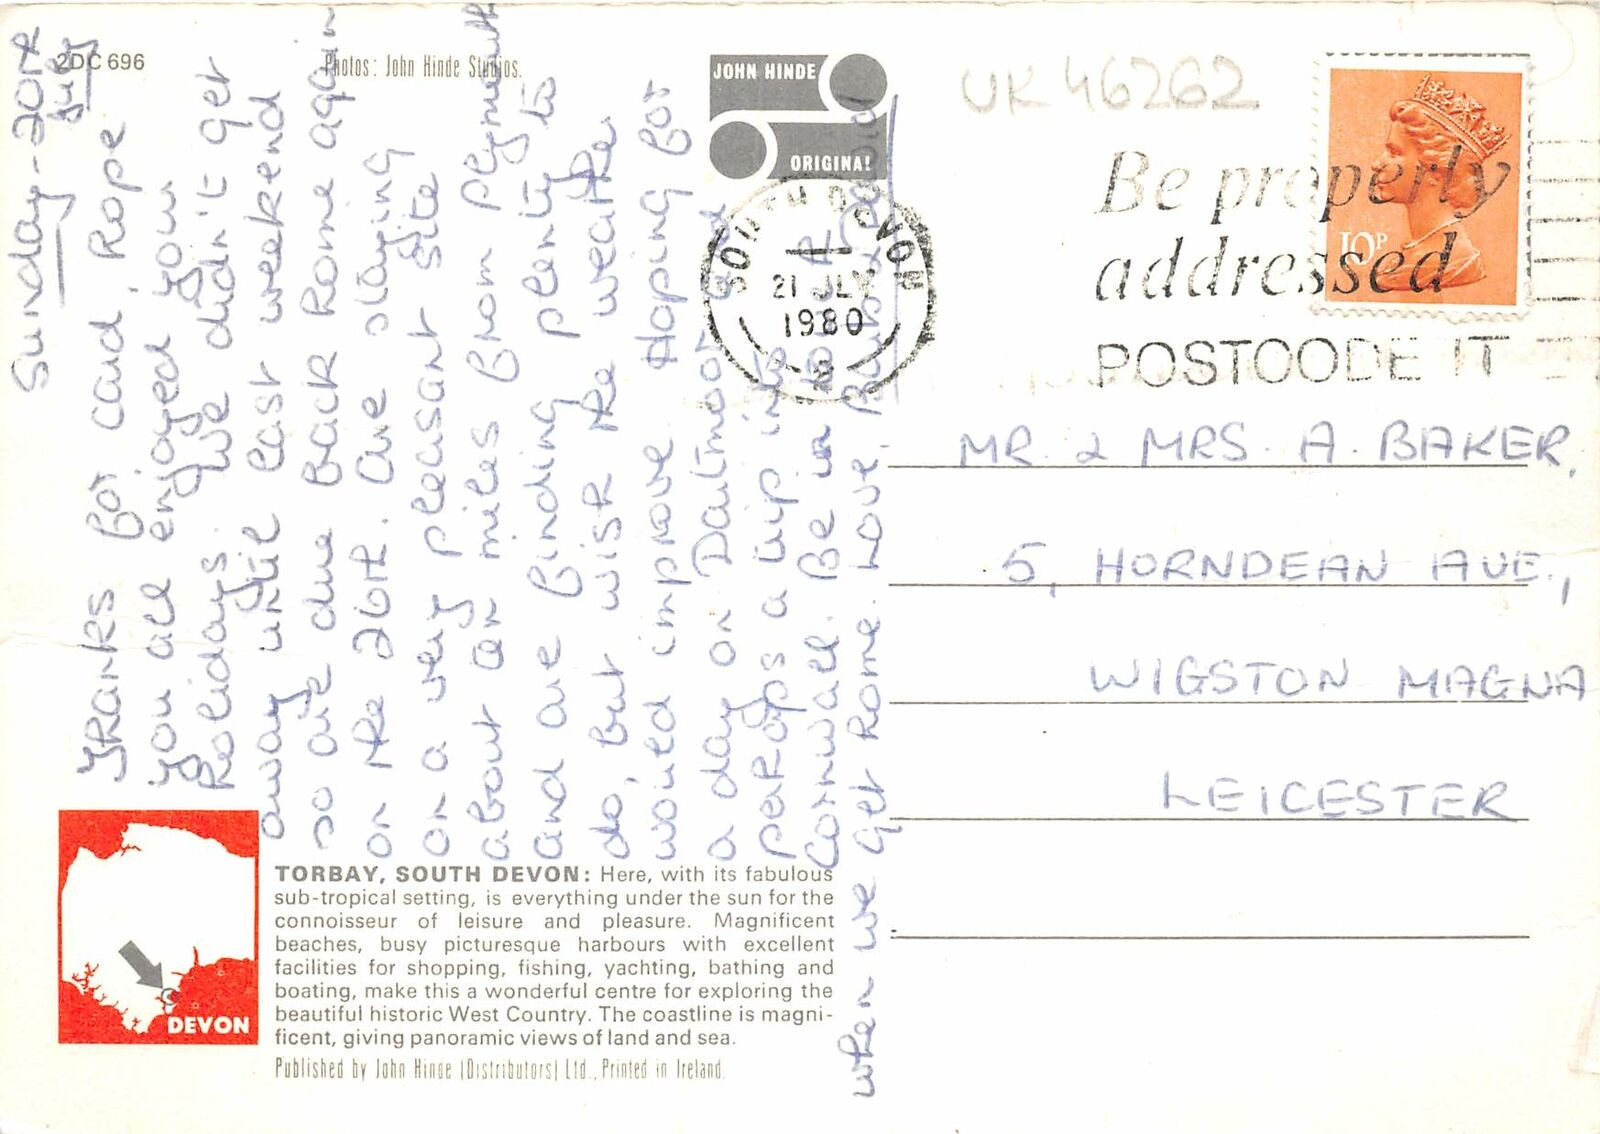 2DC 696
Photos: John Hinde Studios.
JOHN HINDE
ORIGINAL
UK 46262
Be properly
addressed
POSTCODE IT
10P
SOUTH DEVON
21 JLY
1980
Sunday - 20th
July
Thanks for card, hope
you all enjoyed your
holidays. We didn't get
away until last weekend
so are due back home again
on the 26th. Are staying
on a very pleasant site
about miles from Plymouth
and are finding plenty to
do, but wish the weather
would improve. Hoping for
a day on Dartmoor and
perhaps a trip into
Cornwall. Be in touch
when we get home. Love,
MR & MRS. A. BAKER,
5, HORNDEAN AVE.,
WIGSTON MAGNA
LEICESTER
DEVON
TORBAY, SOUTH DEVON: Here, with its fabulous
sub-tropical setting, is everything under the sun for the
connoisseur of leisure and pleasure. Magnificent
beaches, busy picturesque harbours with excellent
facilities for shopping, fishing, yachting, bathing and
boating, make this a wonderful centre for exploring the
beautiful historic West Country. The coastline is magni-
ficent, giving panoramic views of land and sea.
Published by John Hinde (Distributors) Ltd., Printed in Ireland.